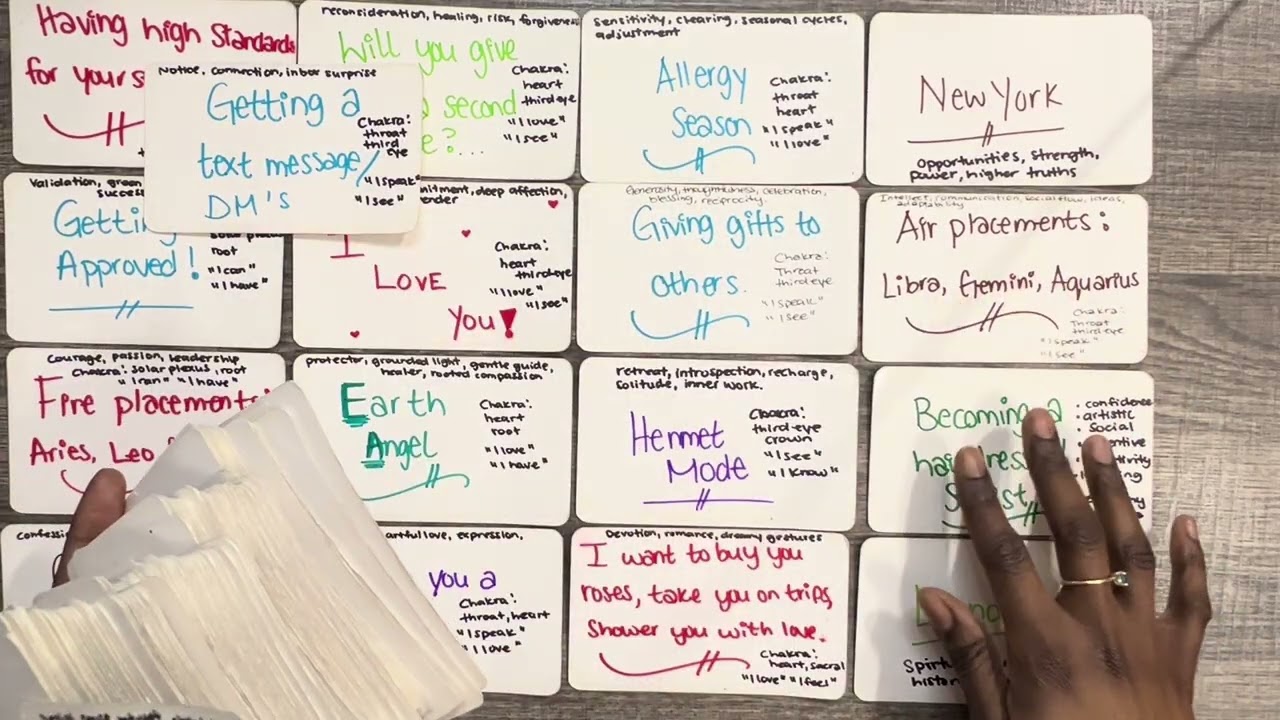 Having high Standards
for your s
reconsideration, healing, risk, forgiveness
Will you give
second
e?...
Chakra:
heart
third eye
"I love"
"I see"
Notice, connection, inbox surprise
Getting a
text message/
DM's
Chakra:
throat
third
eye
"I speak"
"I see"
Sensitivity, clearing, seasonal cycles,
adjustment
Allergy
Season
Chakra:
throat
heart
"I speak"
"I love"
New York
opportunities, strength,
power, higher truths
Validation, green
success
Getting
Approved!
root
"I can"
"I have"
mitment, deep affection,
ender
I
LOVE
You!
Chakra:
heart
third eye
"I love"
"I see"
Generosity, thoughtfulness, celebration,
blessing, reciprocity.
Giving gifts to
others.
Chakra:
Throat
third eye
"I speak"
"I see"
Intellect, communication, social flow, ideas,
adaptability
Air placements:
Libra, Gemini, Aquarius
Chakra:
Throat
third eye
"I speak"
"I see"
Courage, passion, leadership
Chakra: solar plexus, root
"I can" "I have"
Fire placements
Aries, Leo
protector, grounded light, gentle guide,
healer, rooted compassion
Earth
Angel
Chakra:
heart
root
"I love"
"I have"
retreat, introspection, recharge,
solitude, inner work.
Hermet
Mode
Chakra:
third eye
crown
"I see"
"I know"
Becoming a
hai dress
S ist,
: confidence
• artistic
• Social
entive
tivity
ing
confessi
artful love, expression,
you a
Chakra:
throat, heart
"I speak"
"I love"
Devotion, romance, dreamy gestures
I want to buy you
roses, take you on trips,
Shower you with love.
Chakra:
heart, sacral
"I love" "I feel"
Spirit
histor